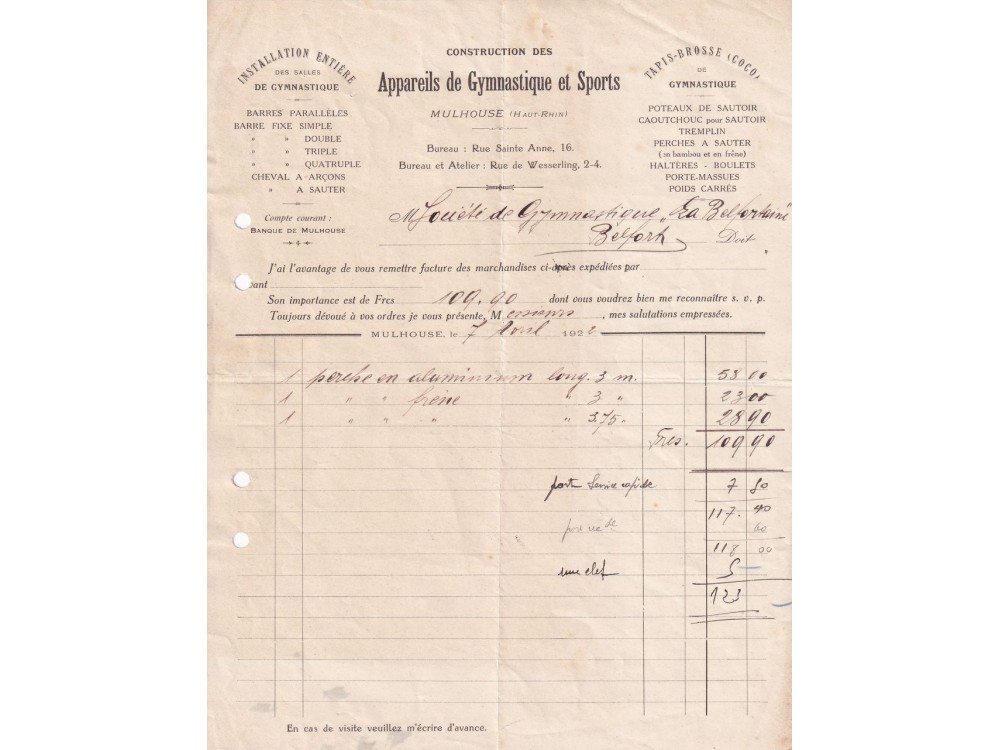 INSTALLATION ENTIÈRE
DES SALLES
DE GYMNASTIQUE
BARRES PARALLÈLES
BARRE FIXE SIMPLE
" " DOUBLE
" " TRIPLE
" " QUATRUPLE
CHEVAL A-ARÇONS
" A SAUTER
Compte courant :
BANQUE DE MULHOUSE
CONSTRUCTION DES
Appareils de Gymnastique et Sports
MULHOUSE (HAUT-RHIN)
Bureau : Rue Sainte Anne, 16.
Bureau et Atelier : Rue de Wesserling, 2-4.
TAPIS-BROSSE (COCO)
DE
GYMNASTIQUE
POTEAUX DE SAUTOIR
CAOUTCHOUC pour SAUTOIR
TREMPLIN
PERCHES A SAUTER
(en bambou et en frêne)
HALTÈRES - BOULETS
PORTE-MASSUES
POIDS CARRÉS
M Société de Gymnastique „La Belfortaine"
Belfort Doit
J'ai l'avantage de vous remettre facture des marchandises ci-après expédiées par
vant
Son importance est de Frcs 109.90 dont vous voudrez bien me reconnaître s. v. p.
Toujours dévoué à vos ordres je vous présente, Messieurs, mes salutations empressées.
MULHOUSE, le 7 Avril 1922
1 perche en aluminium long. 3 m. 58 00
1 " " frêne " 3 " 23 00
1 " " " " 3.75 " 28 90
Frcs. 109 90
port Service rapide 7 50
117. 40
60
118 00
une clef 5 —
123
En cas de visite veuillez m'écrire d'avance.